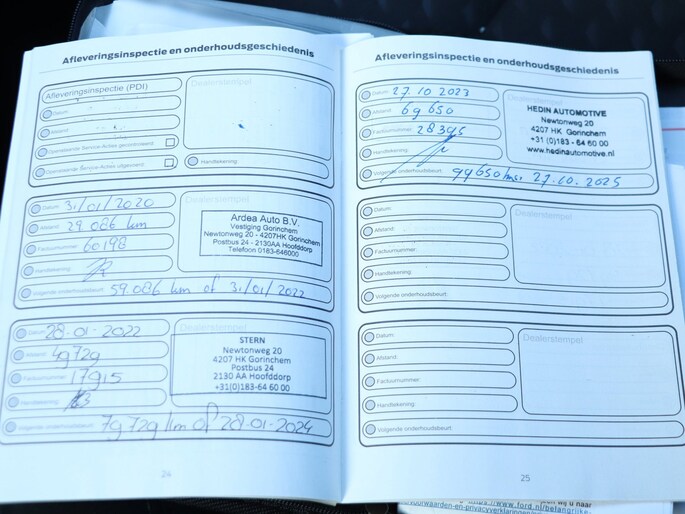 Afleveringsinspectie en onderhoudsgeschiedenis
Afleveringsinspectie (PDI)
Dealerstempel
Datum:
Afstand:
Openstaande Service-Acties gecontroleerd:
Openstaande Service-Acties uitgevoerd:
Handtekening:
Datum: 31/01/2020
Afstand: 29.086 km
Factuurnummer: 60198
Handtekening:
Volgende onderhoudsbeurt: 59.086 km of 31/01/2022
Ardea Auto B.V.
Vestiging Gorinchem
Newtonweg 20 - 4207HK Gorinchem
Postbus 24 - 2130AA Hoofddorp
Telefoon 0183-646000
Datum: 28-01-2022
Afstand: 49729
Factuurnummer: 17915
Handtekening:
Volgende onderhoudsbeurt: 79729 km of 28-01-2024
Dealerstempel
STERN
Newtonweg 20
4207 HK Gorinchem
Postbus 24
2130 AA Hoofddorp
+31(0)183-64 60 00
24
Afleveringsinspectie en onderhoudsgeschiedenis
Datum: 27.10 2023
Afstand: 69650
Factuurnummer: 28395
Handtekening:
Volgende onderhoudsbeurt: 99650 27.10.2025
HEDIN AUTOMOTIVE
Newtonweg 20
4207 HK Gorinchem
+31 (0)183 - 64 60 00
www.hedinautomotive.nl
Datum:
Afstand:
Factuurnummer:
Handtekening:
Volgende onderhoudsbeurt:
Dealerstempel
Datum:
Afstand:
Factuurnummer:
Handtekening:
Volgende onderhoudsbeurt:
Dealerstempel
25
u naar
https://www.ford.nl/belangrijke-
voorwaarden-en-privacyverklaringen